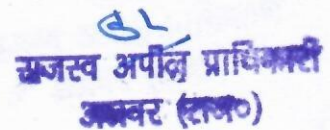 राजस्व अपील प्राधिकारी
अलवर (राज०)